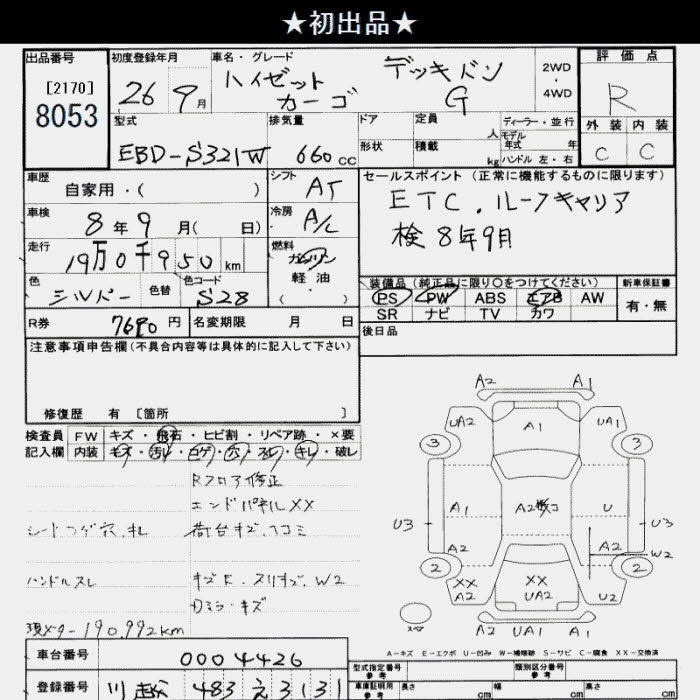 ★初出品★
出品番号 初度登録年月 車名・グレード 2WD・4WD 評価点
[2170]
8053
26年9月 ハイゼットカーゴ デッキバン G R
型式 排気量 ドア 定員 人 ディーラー・並行 外装 内装
EBD-S321W 660cc 形状 積載 kg モデル年式 年 ハンドル 左・右 C C
車歴 シフト セールスポイント (正常に機能するものに限ります)
自家用・( ) AT ETC.ルーフキャリア
車検 冷房
8年9月( 日) A/C 検8年9月
走行 燃料
19万0千950km ガソリン
軽油
・( )
色 色替 色コード 装備品(純正品に限り〇をつけてください) 新車保証書
シルバー S28 PS PW ABS エアB AW 有・無
SR ナビ TV カワ
R券 7690円 名変期限 月 日 後日品
注意事項申告欄(不具合内容等は具体的に記入して下さい)
修復歴 有 [箇所 ]
検査員 FW キズ・飛石・ヒビ割・リペア跡・×要
記入欄 内装 キズ・汚レ・コゲ・穴・スレ・キレ・破レ
Rフロア修正
エンドパネルXX
シートコゲ穴、キレ 荷台キズ、ヘコミ
ハンドルスレ
ミラーキズ
現メーター190,992km
A2 A1
UA2 A1 UA1
3 3
A1 A2 U
U3 U3
A2 A2 W2
2 2
XX XX
A2 UA2 U2
A2 UA1 A1
A-キズ E-エクボ U-凹み W-補修跡 S-サビ C-腐食 XX-交換済
車台番号 0004426 型式指定番号 参考 類別区分番号 参考
登録番号 川越 483 え 3131 車庫証明用 参考 長さ cm 幅 cm 高さ cm